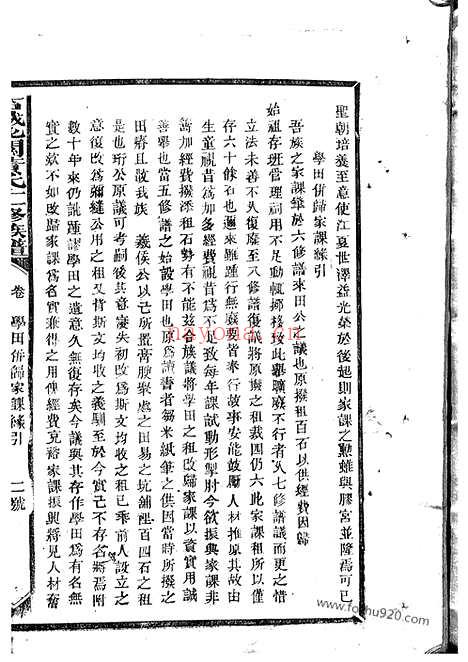 聖朝培養至意使江夏世澤益光榮於後起則家課之興雖與膠宮並隆焉可已
學田併歸家課緣引
吾族之家課肇於六修譜來田公之議也原撥租百石以供經費因歸
始祖存班當理祠用不足動輒挪移按此舉曠廢不行者久七修譜議而更之惜
立法未善不久復廢至八修譜復申前議將原撥之租裁因仍六此家課租所以僅
存六十餘石也邇來雖踵行無廢要皆奉行故事安能鼓屬人材推原其故由
生童視昔為加多經費視昔為不加多以致每年課試動形掣肘今欲振興家課非
籌加經費撥添租石勢有不能茲各族議將學田之租改歸家課以資實用誠
善舉也當五修譜之始設學田也原為讀書者芻米紙筆之供因當時所撥之
田瘠且歉我族　義侯公以己所置膏腴翠處之田易之坑舖裡百四石之租
是也珩公原議可考嗣後其意寖失初改為斯文均收之租已乖前人設立之
意復改為彌縫公用之租又背斯文均收之義馴至於今實已不存名將焉罔
數十年來仍訛踵謬學田之遺意久無復存矣今議與其存作學田為有名無
實之欵不如改歸家課為名實兼得之用俾經費充裕家課振興將見人材奮
修族譜
卷
學田併歸家課緣引
二號
nayona.cn
www.foshu920.com